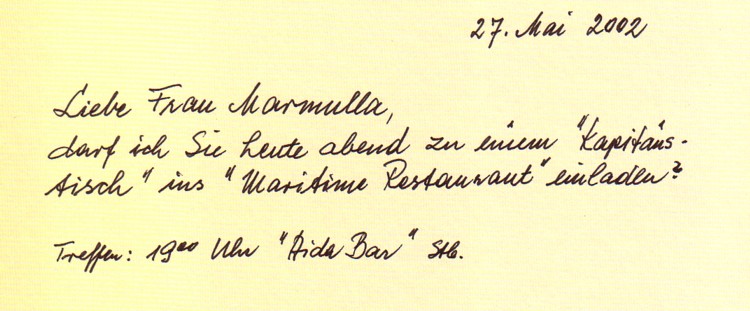 27. Mai 2002
Liebe Frau Marmulla,
darf ich Sie heute abend zu einem "Kapitäns-
tisch" ins "Maritime Restaurant" einladen?
Treffen: 19⁰⁰ Uhr "Aida Bar" Stb.